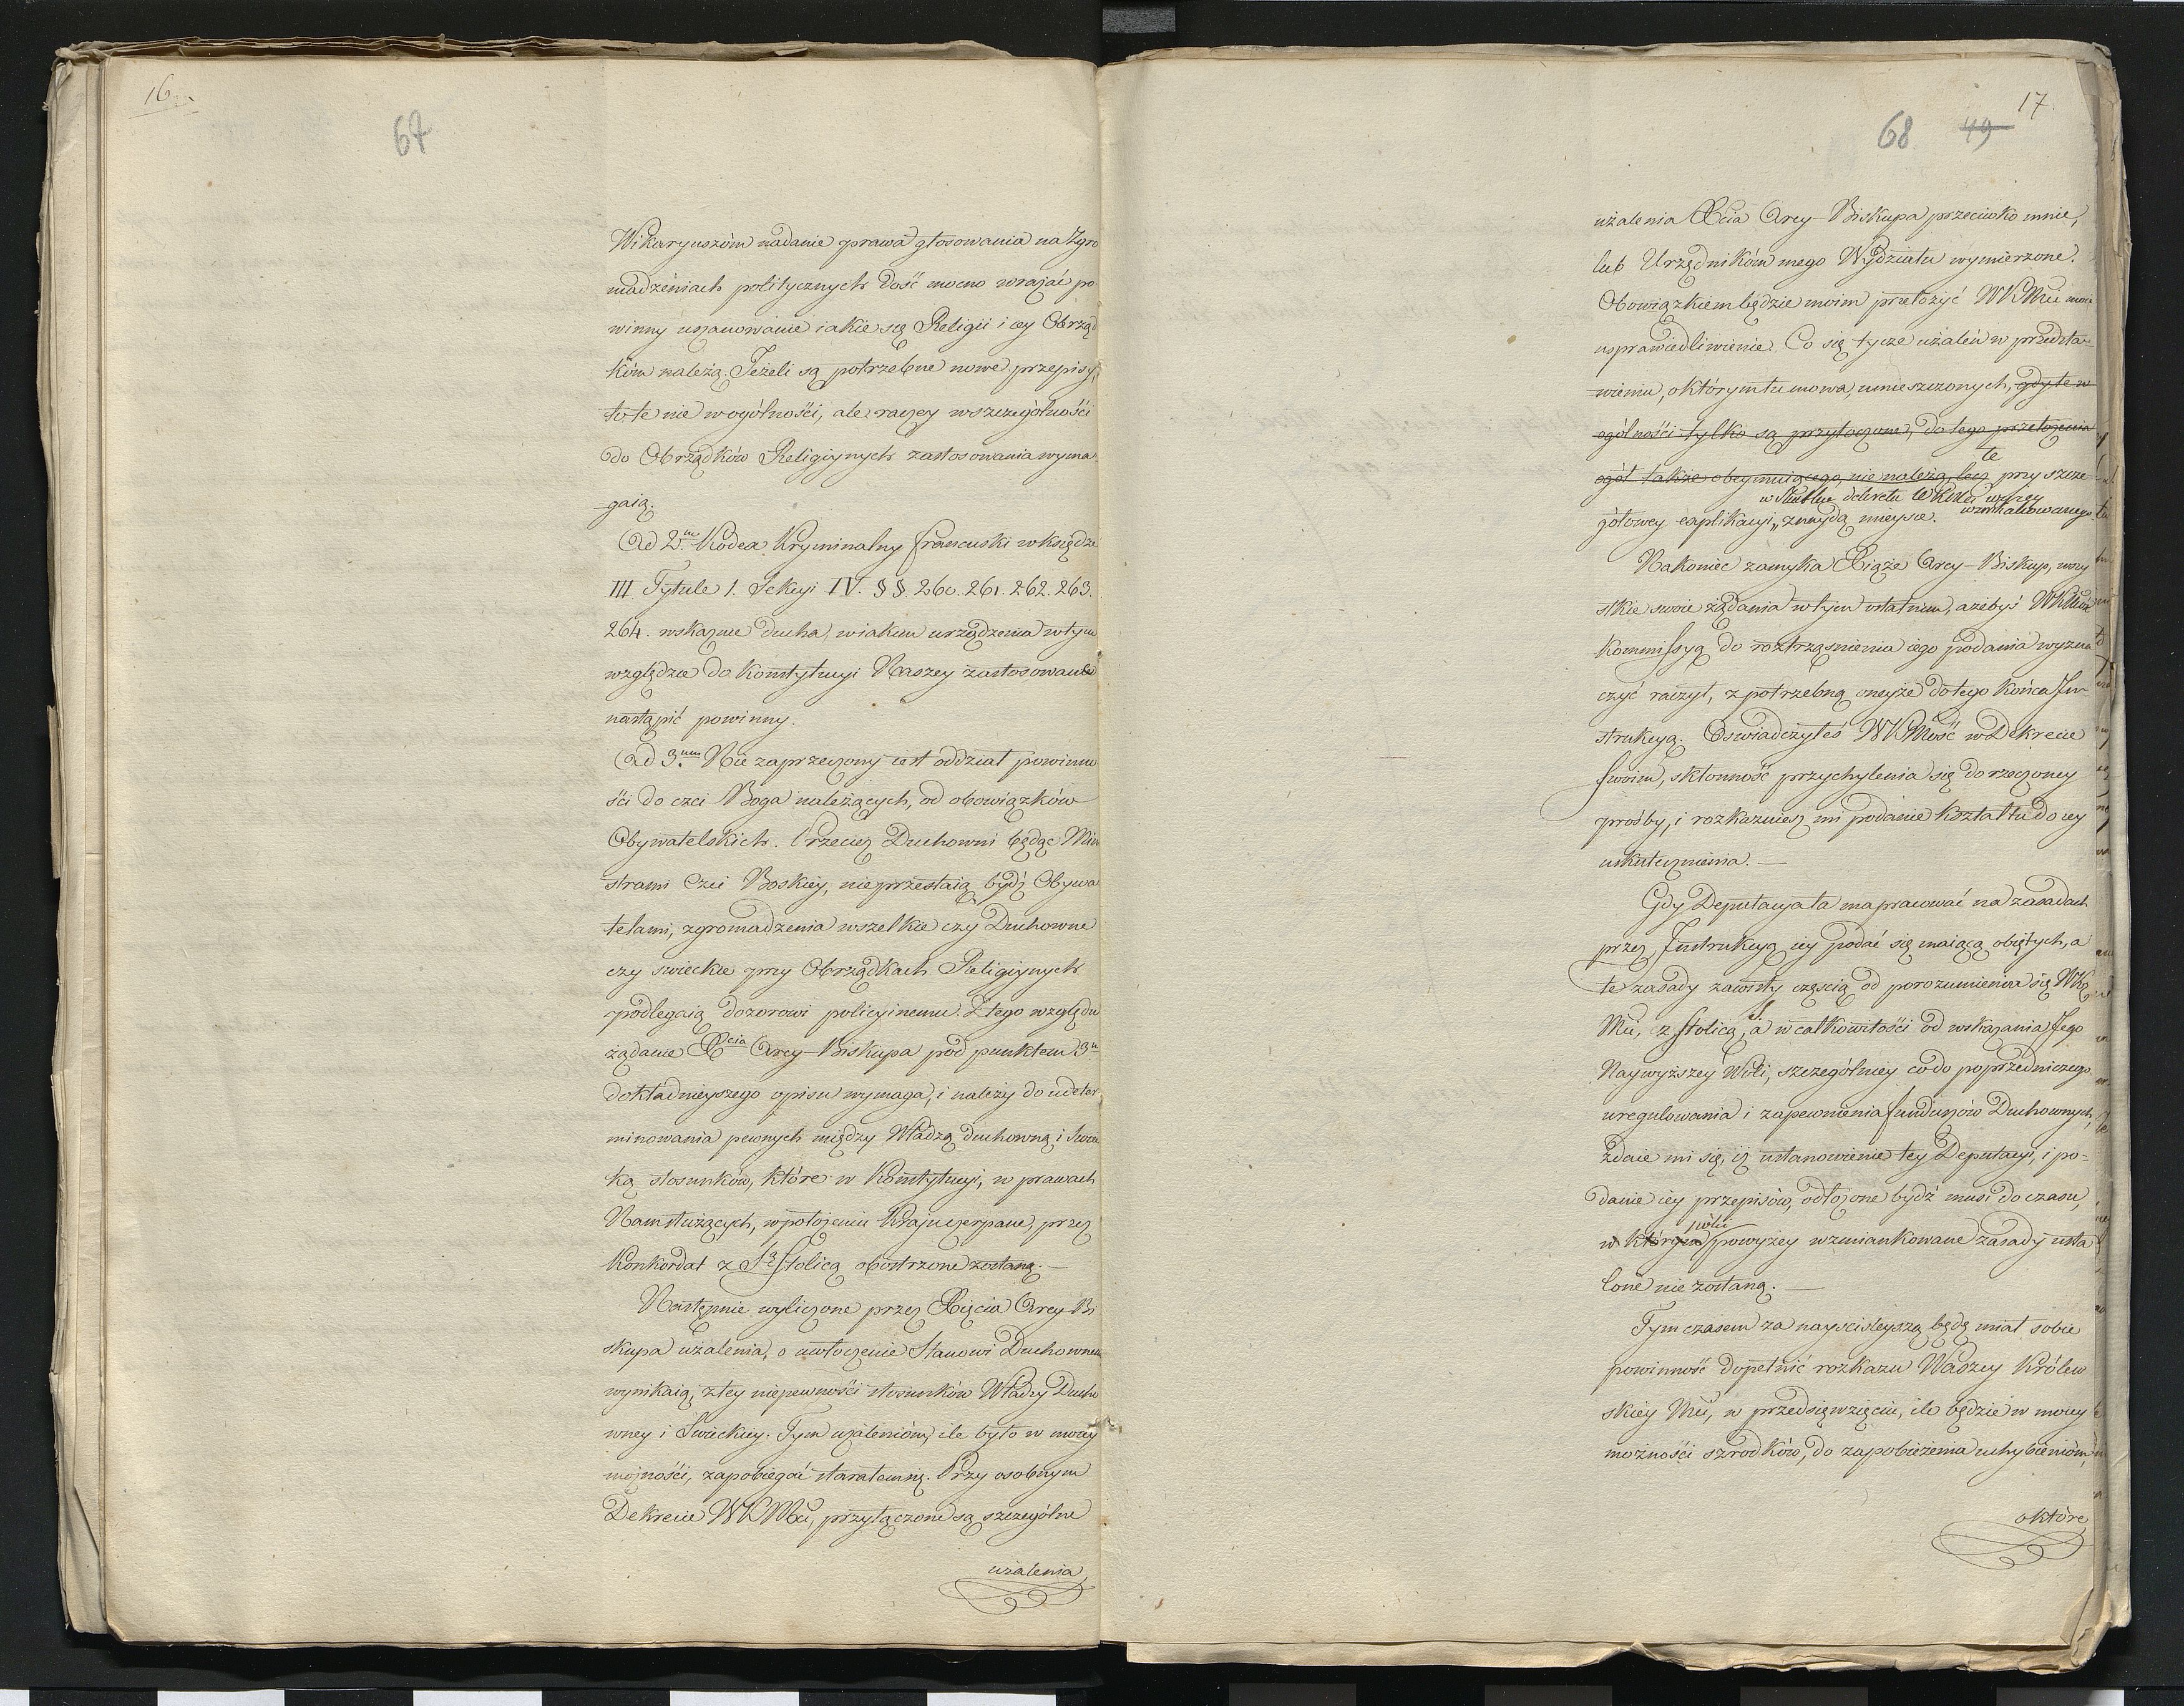 16
67
Wikaryuszóm nadanie prawa głosowania na Zgro
madzeniach politycznych dość mocno wrażać po
winny uszanowanie iakie się Religii i iey Obrząd
ków należą. Jeżeli są potrzebne nowe przepisy,
to te nie w ogólności, ale raczey w szczególności
do Obrządków Religiynych zastosowania wyma-
gaią.
Ad 2m Kodex Kryminalny francuski w księdze
III. Tytule 1. Sekcyi IV. §§. 260. 261. 262. 263.
264. wskazuie ducha, w iakim urządzenia w tym
względzie do Konstytucyi Naszey zastosowane
nastąpić powinny.
Ad 3um Nie zaprzeczony iest oddział powinno
ści do czci Boga należących, od obowiązków
Obywatelskich. Przecież Duchowni będąc Mini
strami Czci Boskiey, nie przestaią bydź Obywa
telami, zgromadzenia wszelkie czy Duchowne
czy swieckie przy Obrządkach Religiynych
podlegaią dozorowi policyinemu. Z tego względu
żądanie Xcia Arcy-Biskupa pod punktem 3m
dokładnieyszego opisu wymaga, i należy do udeter
minowania pewnych między Władzą duchowną i Swiec
ką stosunków, które w Konstytucyi, w prawach
Nam służących, w położeniu Kraju czerpane, przez
Konkordat z Stą Stolicą obostrzone zostaną. —
Następnie wyliczone przez Xięcia Arcy-Bi
skupa użalenia, o uwłoczenie Stanowi Duchownemu
wynikaią, z tey niepewności stosunków Władzy Ducho
wney i Swieckiey. Tym użalenióm, ile było w moiey
możności, zapobiegać starałem się. Przy osobnym
Dekrecie WKMci, przyłączone są szczególne
użalenia
17.
68 49
użalenia Xcia Arcy-Biskupa przeciwko mnie,
lub Urzędnikóm mego Wydziału wymierzone.
Obowiązkiem będzie moim przełożyć WKMci moie
usprawiedliwienie. Co się tycze użaleń w przedsta-
wieniu, o którym tu mowa, umieszczonych, gdy te w
ogólności tylko są przytoczone, do tego przełożenia
ogół także obeymuiącego, nie należą, lecz te przy szcze-
w skutku dekretu WKMci wyżey wzmiankowanego
gółowey explikacyi, znaydą mieysce.
Nakoniec zamyka Xiąże Arcy-Biskup, wszy
stkie swoie żądania w tym ostatnim, ażebyś WKMość
Kommissyą do roztrząśnienia iego podania wyzna
czyć raczył, z potrzebną oneyże do tego końca In-
strukcyą. Oswiadczyłeś WKMość w Dekrecie
swoim, skłonność przychylenia się do rzeczoney
prośby, i rozkazuiesz mi podanie kształtu do iey
uskutecznienia. —
Gdy Deputacya ta ma pracować na zasadach
przez Instrukcyą iey podać się maiącą obiętych, a
te zasady zawisły częścią od porozumienia się WK
Mci, z S. Stolicą, a w całkowitości od wskazania Jego
Naywyższey Woli, szczególniey co do poprzedniczego
uregulowania i zapewnienia funduszów Duchownych,
zdaie mi się, iż ustanowienie tey Deputacyi, i po-
danie iey przepisów, odłożone bydź musi do czasu,
w którym póki powyżey wzmiankowane zasady usta
lone nie zostaną. —
Tymczasem za nayściśleyszą będę miał sobie
powinność dopełnić rozkazu Waszey Królew
skiey Mci, w przedsięwzięciu, ile będzie w moiey
możności szrodków, do zapobieżenia uchybienióm,
o które